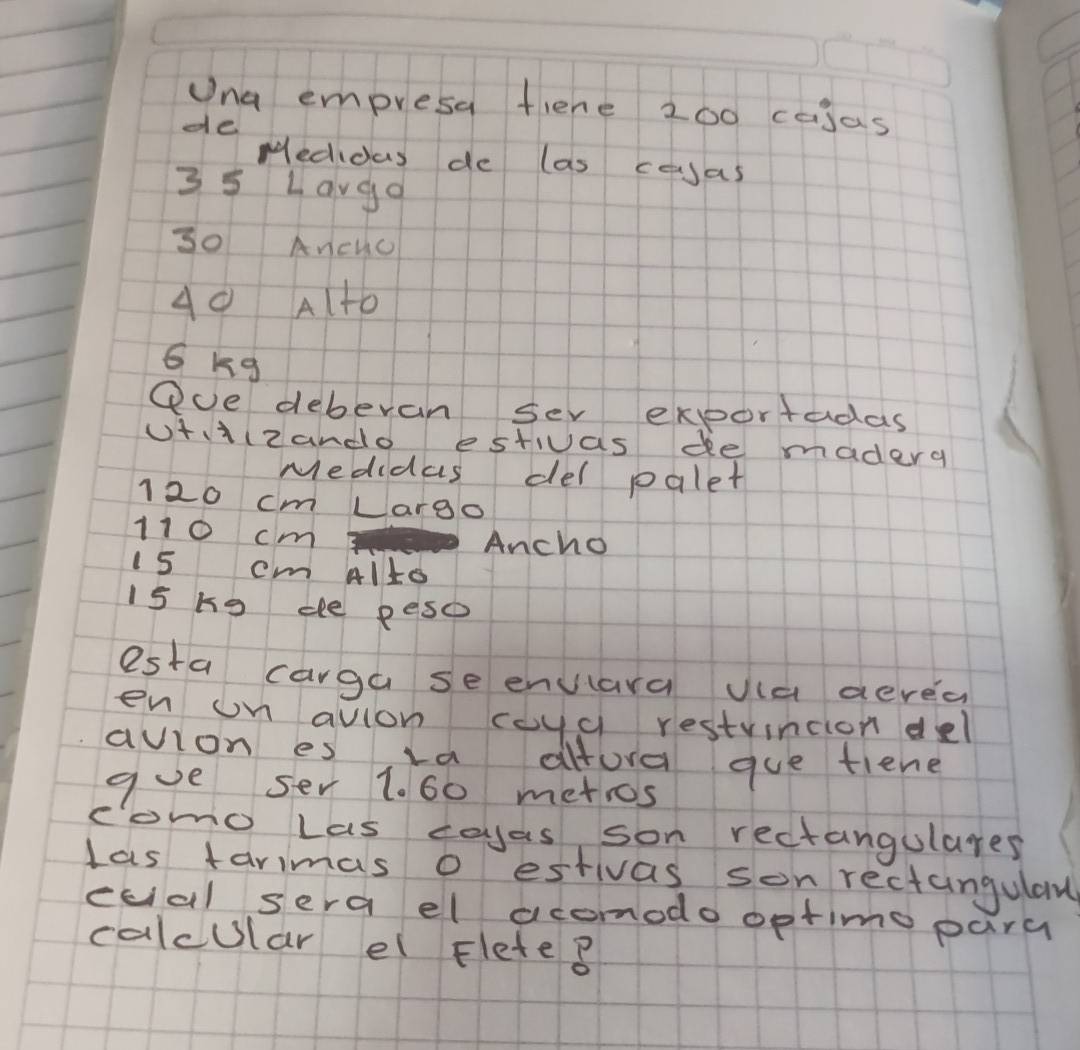 Una empresa tiene 200 cajas
de
Medidas de las cajas
35 Largo
30 Ancho
40 Alto
6 Kg
Que deberan ser exportadas
utilizando estivas de madera
Medidas del palet
120 cm Largo
110 cm Ancho
15 cm Alto
15 Kg de peso
esta carga se enviara via aeréa
en un avion cuya restrincion del
avion es La altura que tiene
que ser 1.60 metros
como Las cajas son rectangulares
Las tarimas o estivas son rectangulares
cual sera el acomodo optimo para
calcular el Flete?